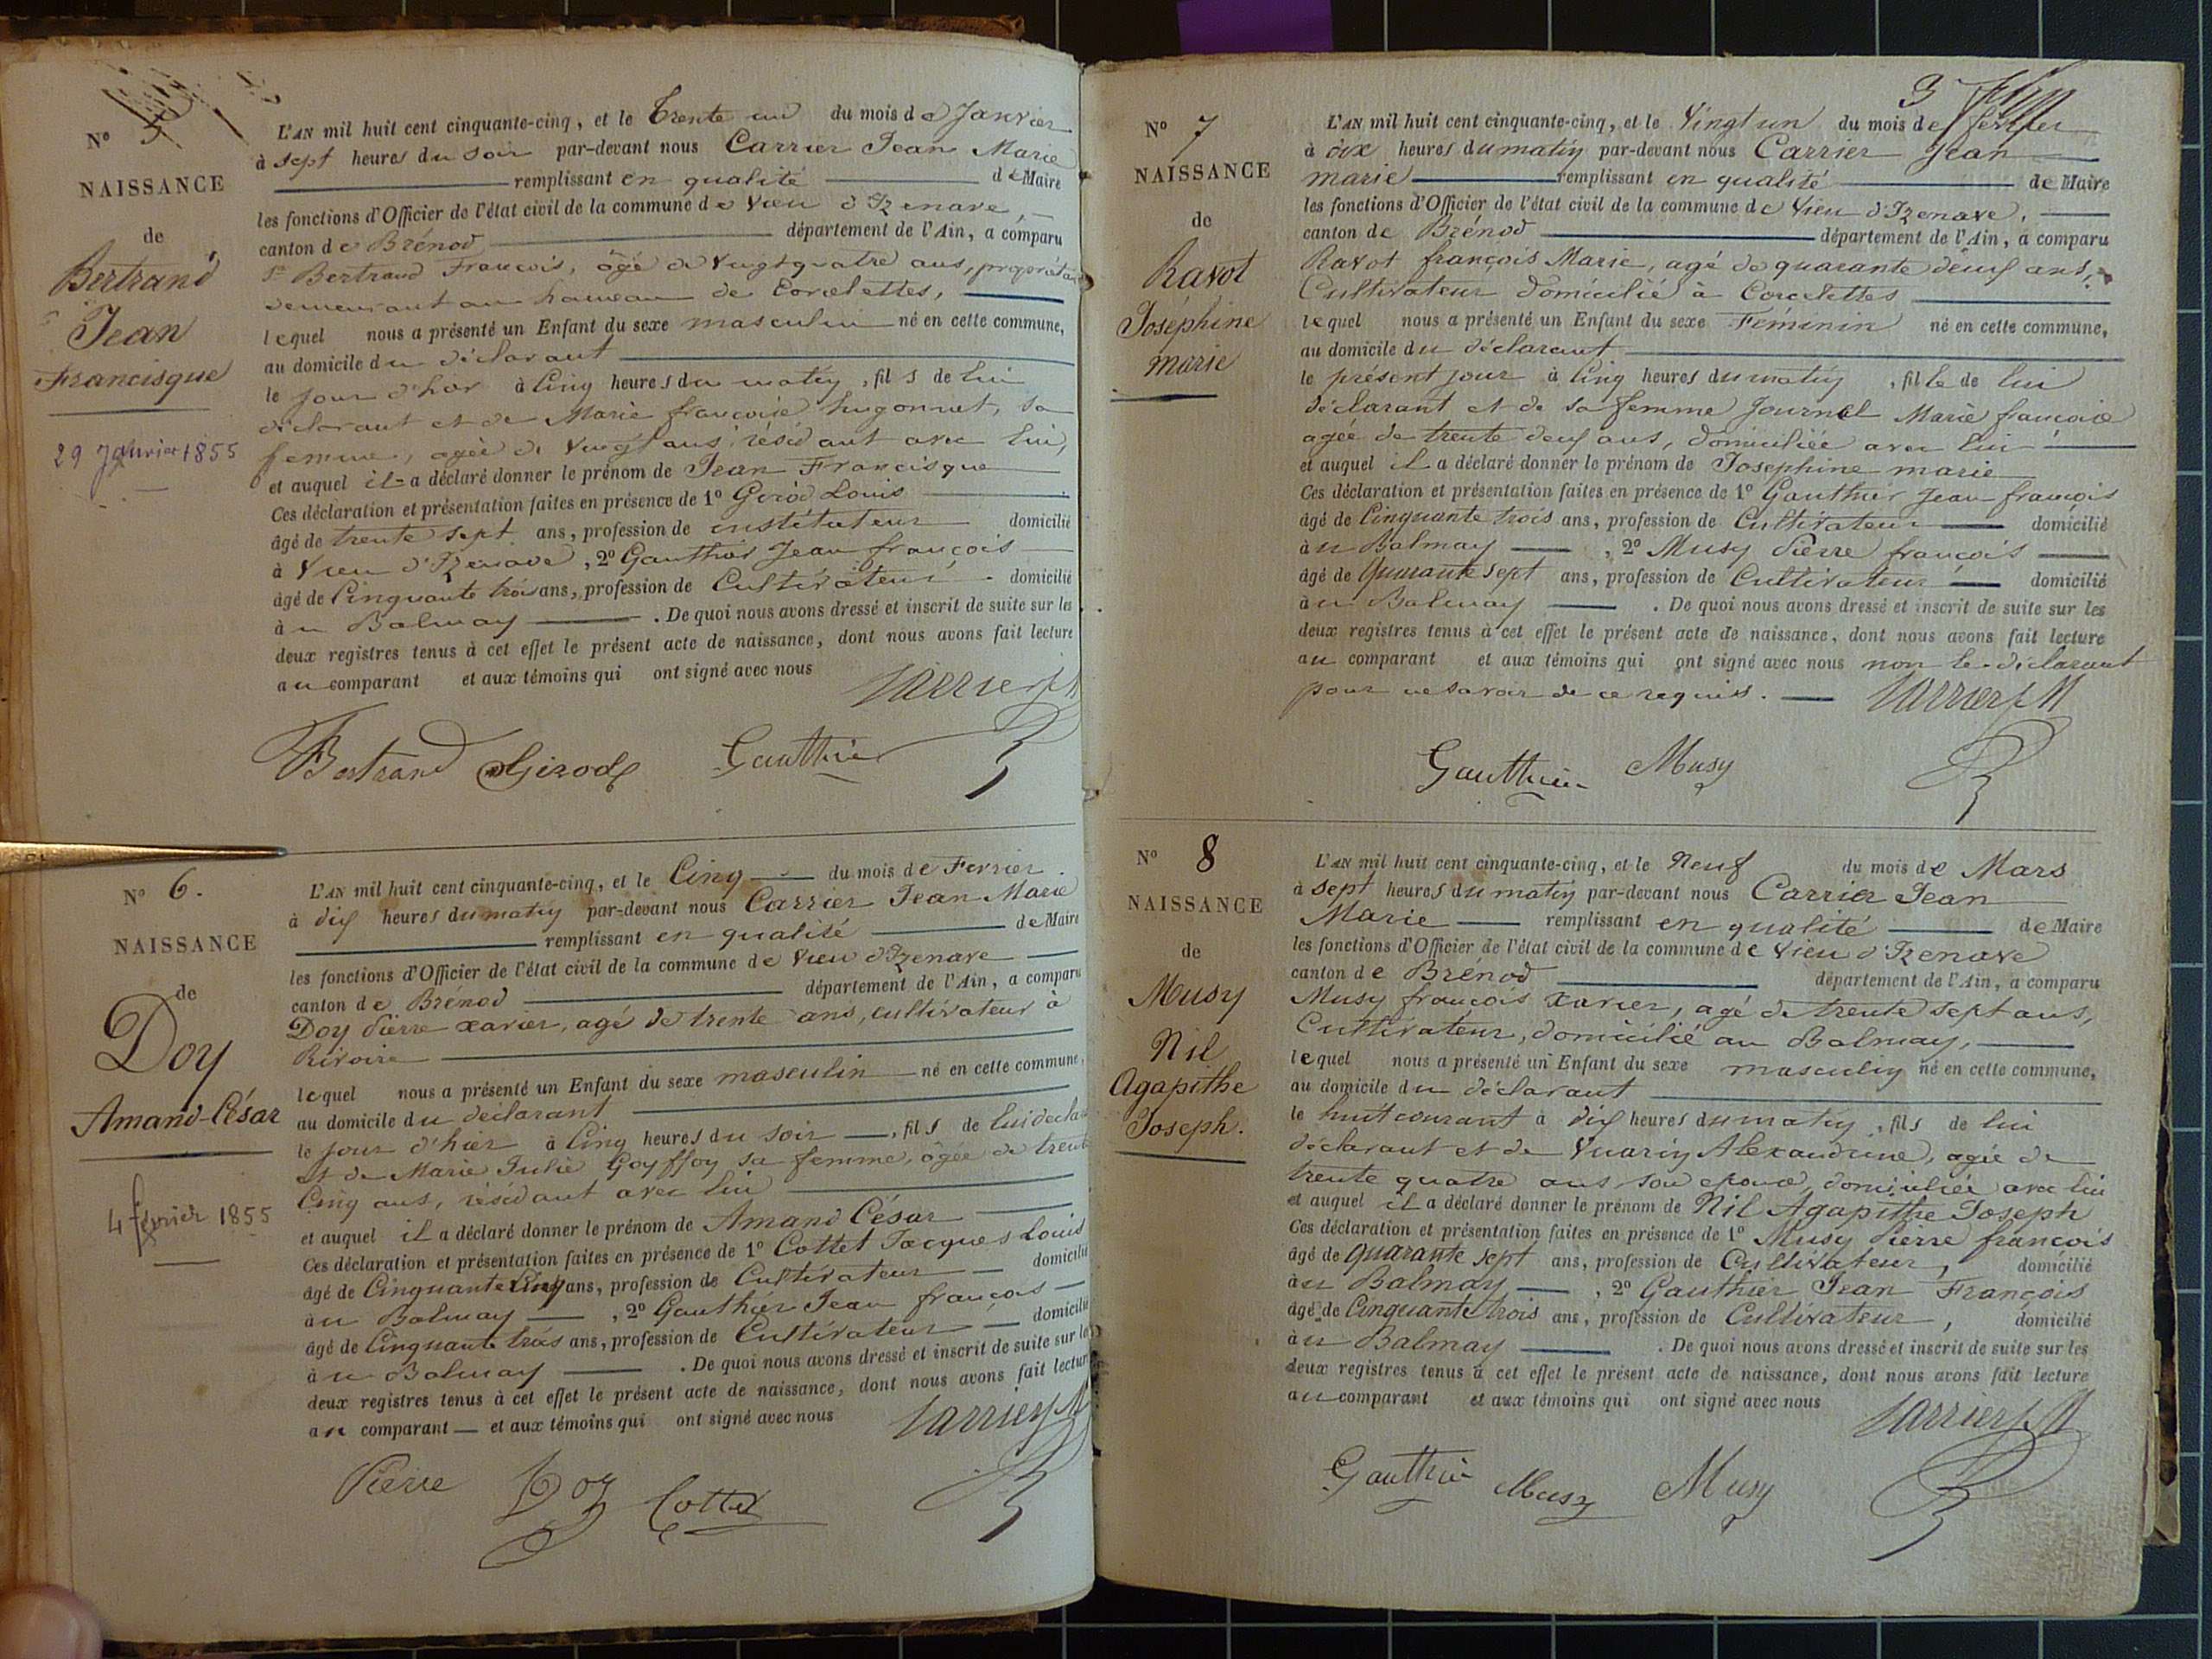 N° 5
NAISSANCE
de
Bertrand
Jean
Francisque
29 Janvier 1855
L'AN mil huit cent cinquante-cinq, et le Trente un du mois de Janvier
à sept heures du soir par-devant nous Carrier Jean Marie
remplissant en qualité de Maire
les fonctions d'Officier de l'état civil de la commune de Vieu d'Izenave,
canton de Brénod département de l'Ain, a comparu
Sr Bertrand François, âgé de vingt quatre ans, propriétaire
demeurant au hameau de Corcelettes,
lequel nous a présenté un Enfant du sexe masculin né en cette commune,
au domicile du déclarant
le jour d'hier à Cinq heures du matin, fils de lui
déclarant et de Marie françoise hugonnet, sa
femme, agée de vingt ans résidant avec lui,
et auquel il a déclaré donner le prénom de Jean Francisque
Ces déclaration et présentation faites en présence de 1° Girod Louis
âgé de trente sept ans, profession de instituteur domicilié
à Vieu d'Izenave, 2° Gauthier Jean françois
âgé de Cinquante trois ans, profession de Cultivateur domicilié
à u Balmay. De quoi nous avons dressé et inscrit de suite sur les
deux registres tenus à cet effet le présent acte de naissance, dont nous avons fait lecture
au comparant et aux témoins qui ont signé avec nous
Carrier J M
Bertrand Girod Gauthier
N° 6.
NAISSANCE
de
Doy
Amand-César
4 février 1855
L'AN mil huit cent cinquante-cinq, et le Cinq du mois de Fevrier
à dix heures du matin par-devant nous Carrier Jean Marie
remplissant en qualité de Maire
les fonctions d'Officier de l'état civil de la commune de Vieu d'Izenave
canton de Brénod département de l'Ain, a comparu
Doy Pierre xavier, agé de trente ans, cultivateur à
Rivoire
lequel nous a présenté un Enfant du sexe masculin né en cette commune,
au domicile du déclarant
le jour d'hier à Cinq heures du soir, fils de lui décla
et de Marie Julie Goyffoy sa femme, âgée de trente
Cinq ans, résidant avec lui
et auquel il a déclaré donner le prénom de Amand César
Ces déclaration et présentation faites en présence de 1° Cottet Jacques Louis
âgé de Cinquante Cinq ans, profession de Cultivateur domicilié
à u Balmay, 2° Gauthier Jean françois
âgé de Cinquante trois ans, profession de Cultivateur domicilié
à u Balmay. De quoi nous avons dressé et inscrit de suite sur les
deux registres tenus à cet effet le présent acte de naissance, dont nous avons fait lecture
au comparant et aux témoins qui ont signé avec nous
Carrier J M
Pierre Doy Cottet
3
N° 7
NAISSANCE
de
Ravot
Joséphine
marie
L'AN mil huit cent cinquante-cinq, et le Vingt un du mois de fevrier
à dix heures du matin par-devant nous Carrier Jean
marie remplissant en qualité de Maire
les fonctions d'Officier de l'état civil de la commune de Vieu d'Izenave,
canton de Brénod département de l'Ain, a comparu
Ravot françois Marie, agé de quarante deux ans,
Cultivateur domicilié à Corcelettes
lequel nous a présenté un Enfant du sexe Féminin né en cette commune,
au domicile du déclarant
le présent jour à Cinq heures du matin, fille de lui
déclarant et de sa femme Journel Marie françoise
agée de trente deux ans, domiciliée avec lui
et auquel il a déclaré donner le prénom de Josephine marie
Ces déclaration et présentation faites en présence de 1° Gauthier Jean françois
âgé de Cinquante trois ans, profession de Cultivateur domicilié
à u Balmay, 2° Musy Pierre françois
âgé de Quarante sept ans, profession de Cultivateur domicilié
à u Balmay. De quoi nous avons dressé et inscrit de suite sur les
deux registres tenus à cet effet le présent acte de naissance, dont nous avons fait lecture
au comparant et aux témoins qui ont signé avec nous non le déclarant
pour ne savoir de ce requis. Carrier J M
Gauthier Musy
N° 8
NAISSANCE
de
Musy
Nil
Agapithe
Joseph.
L'AN mil huit cent cinquante-cinq, et le Neuf du mois de Mars
à sept heures du matin par-devant nous Carrier Jean
Marie remplissant en qualité de Maire
les fonctions d'Officier de l'état civil de la commune de Vieu d'Izenave
canton de Brénod département de l'Ain, a comparu
Musy françois xavier, agé de trente sept ans,
Cultivateur, domicilié au Balmay,
lequel nous a présenté un Enfant du sexe masculin né en cette commune,
au domicile du déclarant
le huit courant à dix heures du matin, fils de lui
déclarant et de Vuarin Alexandrine, agée de
trente quatre ans son epouse, domiciliée avec lui
et auquel il a déclaré donner le prénom de Nil Agapithe Joseph
Ces déclaration et présentation faites en présence de 1° Musy Pierre françois
âgé de quarante sept ans, profession de Cultivateur, domicilié
à u Balmay, 2° Gauthier Jean François
âgé de Cinquante trois ans, profession de Cultivateur, domicilié
à u Balmay. De quoi nous avons dressé et inscrit de suite sur les
deux registres tenus à cet effet le présent acte de naissance, dont nous avons fait lecture
au comparant et aux témoins qui ont signé avec nous
Carrier J M
Gauthier Musy Musy